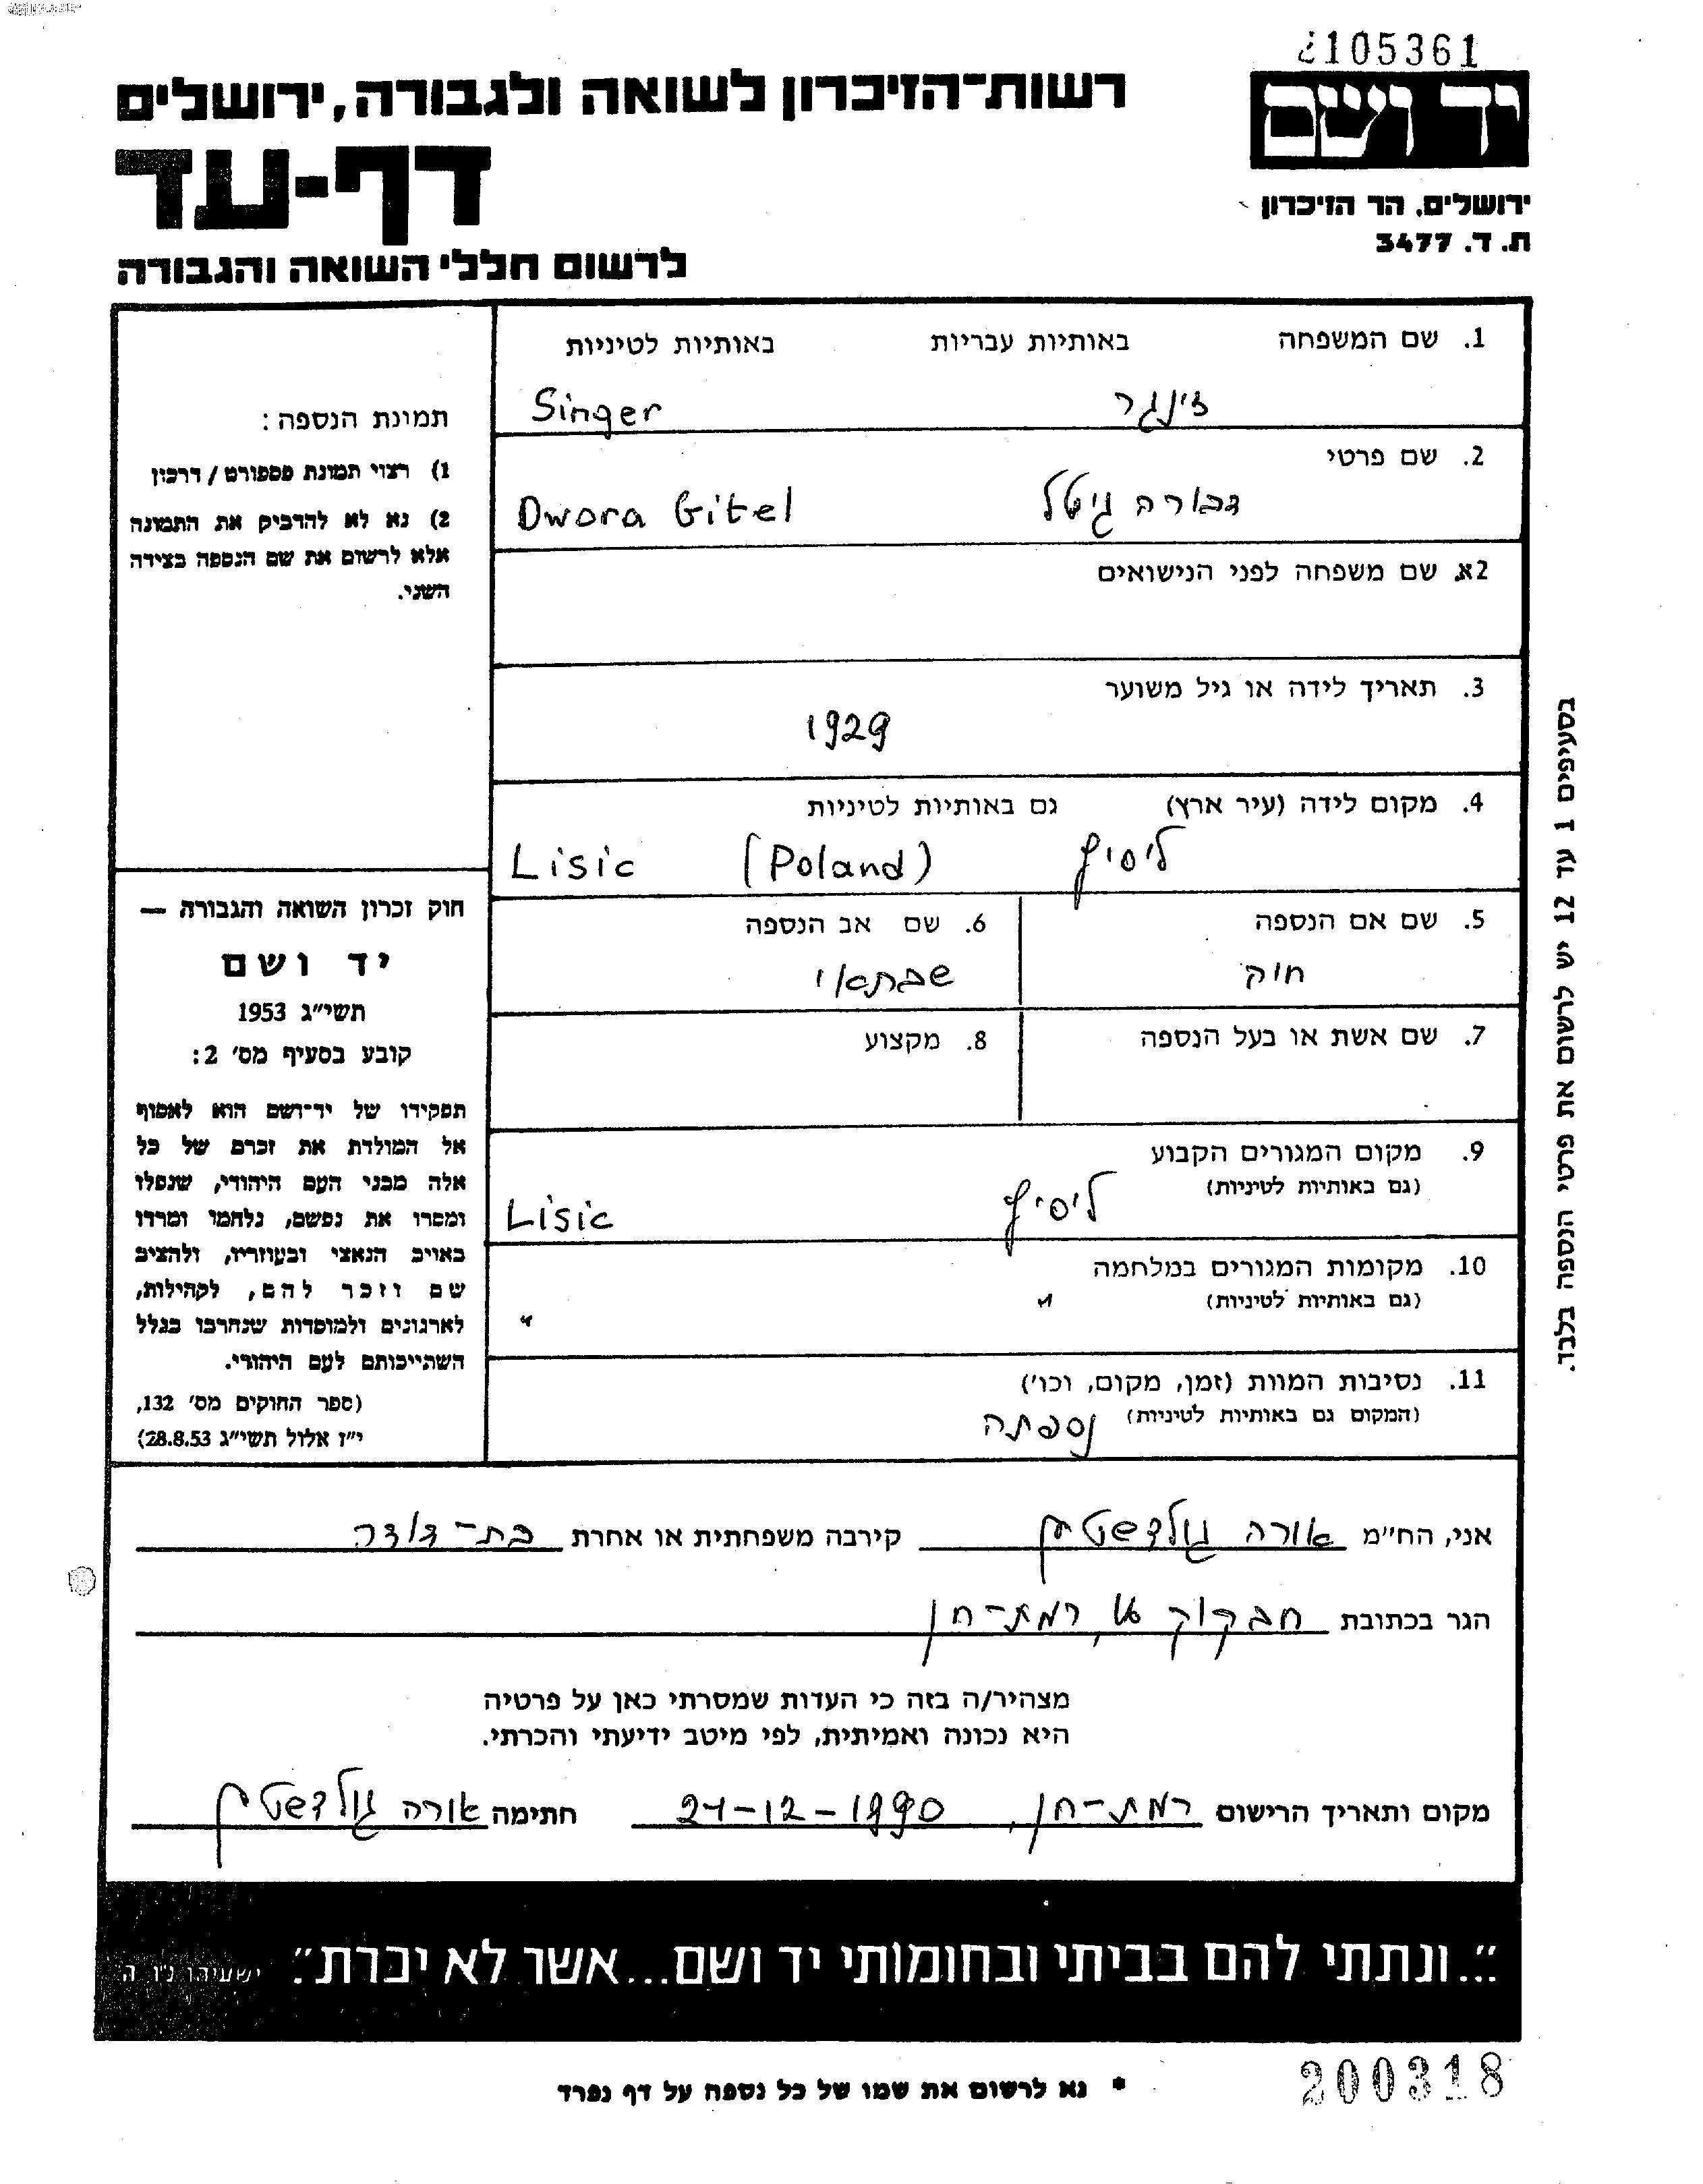 2105361
רשות־הזיכרון לשואה ולגבורה, ירושלים
יד ושם
דף-עד
ירושלים, הר הזיכרון
ת. ד. 3477
לרשום חללי השואה והגבורה
1. שם המשפחה באותיות עבריות באותיות לטיניות
זינגר Singer
2. שם פרטי
דבורה גיטל Dwora Gitel
2א. שם משפחה לפני הנישואים
3. תאריך לידה או גיל משוער
1929
4. מקום לידה (עיר ארץ) גם באותיות לטיניות
ליסיץ (Poland) Lisic
5. שם אם הנספה 6. שם אב הנספה
שבתאי
7. שם אשת או בעל הנספה 8. מקצוע
9. מקום המגורים הקבוע
(גם באותיות לטיניות)
ליסיץ Lisic
10. מקומות המגורים במלחמה
(גם באותיות לטיניות)
" "
11. נסיבות המוות (זמן, מקום, וכו')
(המקום גם באותיות לטיניות) נספתה
תמונת הנספה:
1) רצוי תמונת פספורט / דרכון
2) נא לא להדביק את התמונה
אלא לרשום את שם הנספה בצידה
השני.
חוק זכרון השואה והגבורה —
יד ושם
תשי"ג 1953
קובע בסעיף מס' 2:
תפקידו של יד־ושם הוא לאסוף
אל המולדת את זכרם של כל
אלה מבני העם היהודי, שנפלו
ומסרו את נפשם, נלחמו ומרדו
באויב הנאצי ובעוזריו, ולהציב
שם וזכר להם, לקהילות,
לארגונים ולמוסדות שנחרבו בגלל
השתייכותם לעם היהודי.
(ספר החוקים מס' 132,
י"ז אלול תשי"ג 28.8.53)
בסעיפים 1 עד 12 יש לרשום את פרטי הנספה בלבד.
אני, הח"מ אורה גולדשטיין קירבה משפחתית או אחרת בת-דודה
הגר בכתובת חבקוק, רמת-חן
מצהיר/ה בזה כי העדות שמסרתי כאן על פרטיה
היא נכונה ואמיתית, לפי מיטב ידיעתי והכרתי.
מקום ותאריך הרישום רמת-חן, 24-12-1990 חתימה אורה גולדשטיין
"...ונתתי להם בביתי ובחומותי יד ושם...אשר לא יכרת". ישעיהו נ"ו ה
* נא לרשום את שמו של כל נספה על דף נפרד
200318